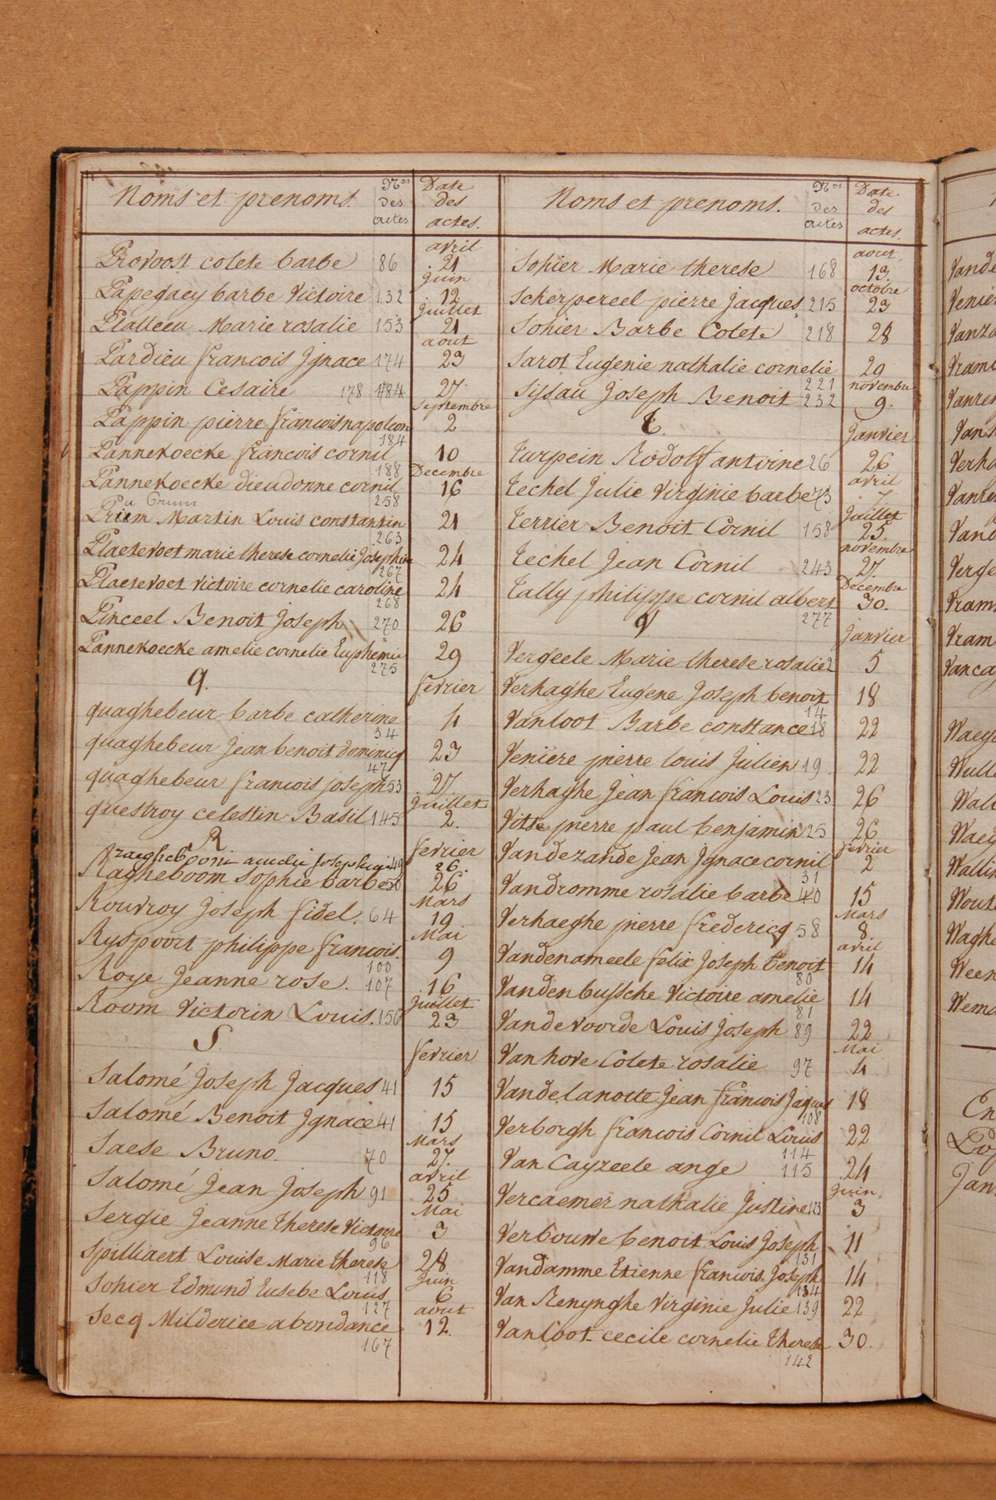 Noms et prenoms Nos des actes Date des actes.
avril
Provoost colete barbe 86 21
juin
Papegaey barbe Victoire 132 12
juillet
Platteeu Marie rosalie 153 21
aout
Pardieu francois Ignace 174 23
Pappin Cesaire 178 184 27
Septembre
Pappin pierre francois napoleon 2
184
Pannekoecke francois cornil 10
188
Decembre
Pannekoecke dieudonne cornil 16
258
Priem Martin Louis constantin 21
263
Plaetevoet marie therese cornelie Josephine 24
267
Plaetevoet victoire cornelie caroline 24
268
Pinceel Benoit Joseph 270 26
Pannekoecke amelie cornelie Euphemie 29
275
q.
fevrier
quaghebeur barbe catherine 4
34
quaghebeur jean benoit dominicq 23
47
quaghebeur francois joseph 53 27
juillet
questroy celestin Basil 145 2.
R
fevrier
26
Ragheboom Sophie barbe 26
Mars
Rouvroy Joseph fidel. 64 19
Mai
Ryspoort philippe francois. 9
100
Roye Jeanne rose. 107 16
Juillet
Room Victorin Louis. 156 23
S
fevrier
Salomé Joseph Jacques 41 15
Salomé Benoit Ignace 41 15
Mars
Saese Bruno. 70 27.
avril
Salomé Jean Joseph 91 25
Mai
Sergie Jeanne therese Victoire 3
96
Spilliaert Louise Marie therese 28
118
Juin
Sohier Edmond Eusebe Louis 6
127
aout
Secq Milderice abondance 12.
167
Noms et prenoms. Nos des actes Date des actes.
aout
Sohier Marie therese 168 13
octobre
Scherpereel pierre jacques 215 23
Sohier Barbe Colete 218 28
Sarot Eugenie nathalie cornelie 29
221
novembre
Sissau Joseph Benoit 232 9.
t.
Janvier
Turpein Rodolf antoine 26 26
avril
Techel Julie Virginie barbe 73 7
Juillet
Terrier Benoit Cornil 158 25.
novembre
Techel Jean Cornil 243 27.
Decembre
Tally philippe cornil albert 30.
277
V
Janvier
Vergeele Marie therese rosalie 2 5
Verhaghe Eugene Joseph benoit 18
14
Vanloot Barbe constance 18 22
Veniere pierre louis Julien 19 22
Verhaghe Jean francois Louis 23 26
Vitse pierre paul benjamin 25 26
fevrier
Vandezande Jean Ignace cornil 2
31
Vandromme rosalie barbe 40 15
Mars
Verhaeghe pierre frederic 58 8.
avril
Vandenameele felix Joseph benoit 14
80
Vandenbussche Victoire amelie 14
81
Vandevoorde Louis Joseph 89 22
Mai
Vanhove Colete rosalie 97 4
Vandelanotte Jean francois Jaques 18
108
Verborgh francois Cornil Louis 22
114
Van Cayzeele ange 115 24
Juin
Vercaemer nathalie Justine 123 3
Verbouwe benoit Louis Joseph 11
131
Vandamme Etienne francois Joseph 14
134
Van Renynghe Virginie Julie 139 22
Vanloot cecile cornelie therese 30.
142